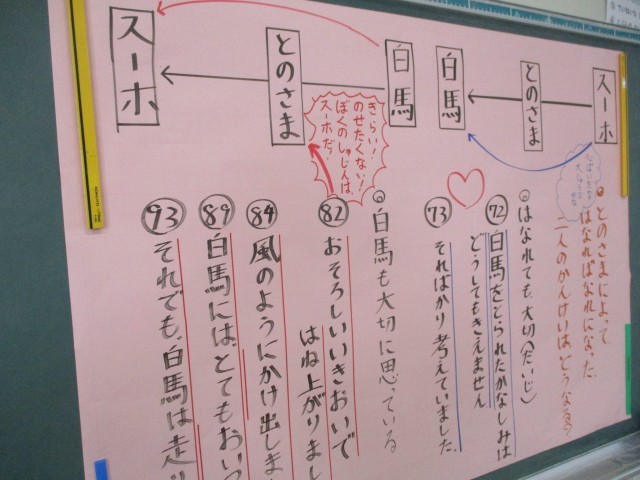 スーホ
とのさま
白馬
とのさまによって
はなればなれになった
二人のかんけいは、どうなる？
はなれても、大切(だいじ)
72
白馬をとられたかなしみは
どうしてもきえません
73
そればかり考えていました。
白馬
とのさま
スーホ
きらい！
のせたくない！
ぼくのしゅじんは、
スーホだ！
白馬も大切に思っている
82
おそろしいいきおいで
はね上がりまし
84
風のようにかけ出しま
89
白馬には、とてもおいつ
93
それでも、白馬は走り